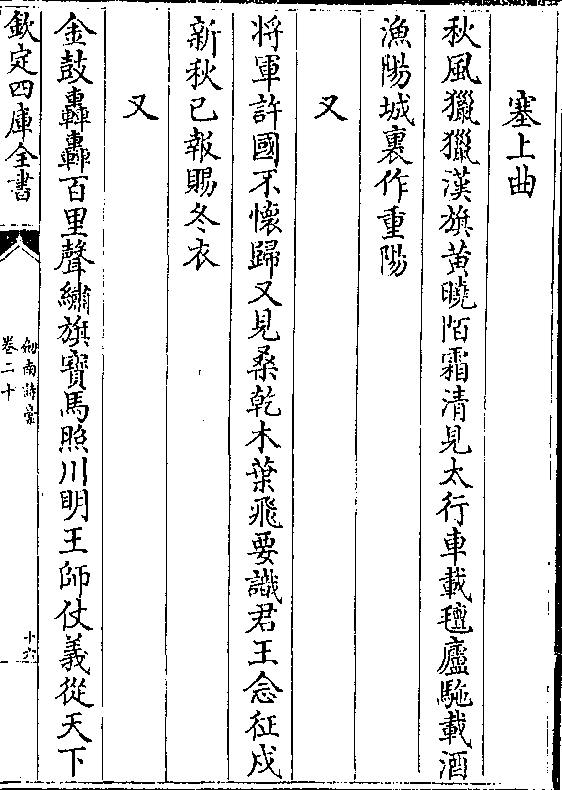 塞上曲
秋風獵獵漢旗黄曉陌霜清見太行車載氊廬駞載酒
漁陽城裏作重陽
又
將軍許國不懷歸又見桑乾木葉飛要識君王念征戍
新秋已報賜冬衣
又
金鼓轟轟百里聲繡旗寶馬照川明王師仗義從天下
欽定四庫全書
劍南詩稾
卷二十
十六